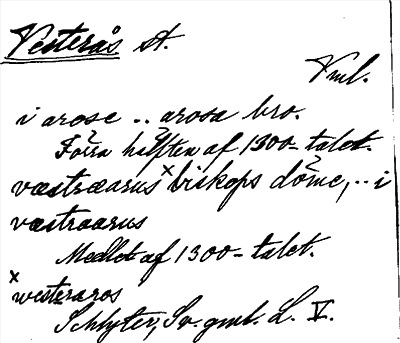 Vesterås st.
Vml.
i arose .. arosa bro.
Förra hälften af 1300-talet.
væstræarus x biskops döme, .. i
væstraarus
Medlet af 1300-talet.
x westeraros
Schlyter, Sv. gml. L. V.